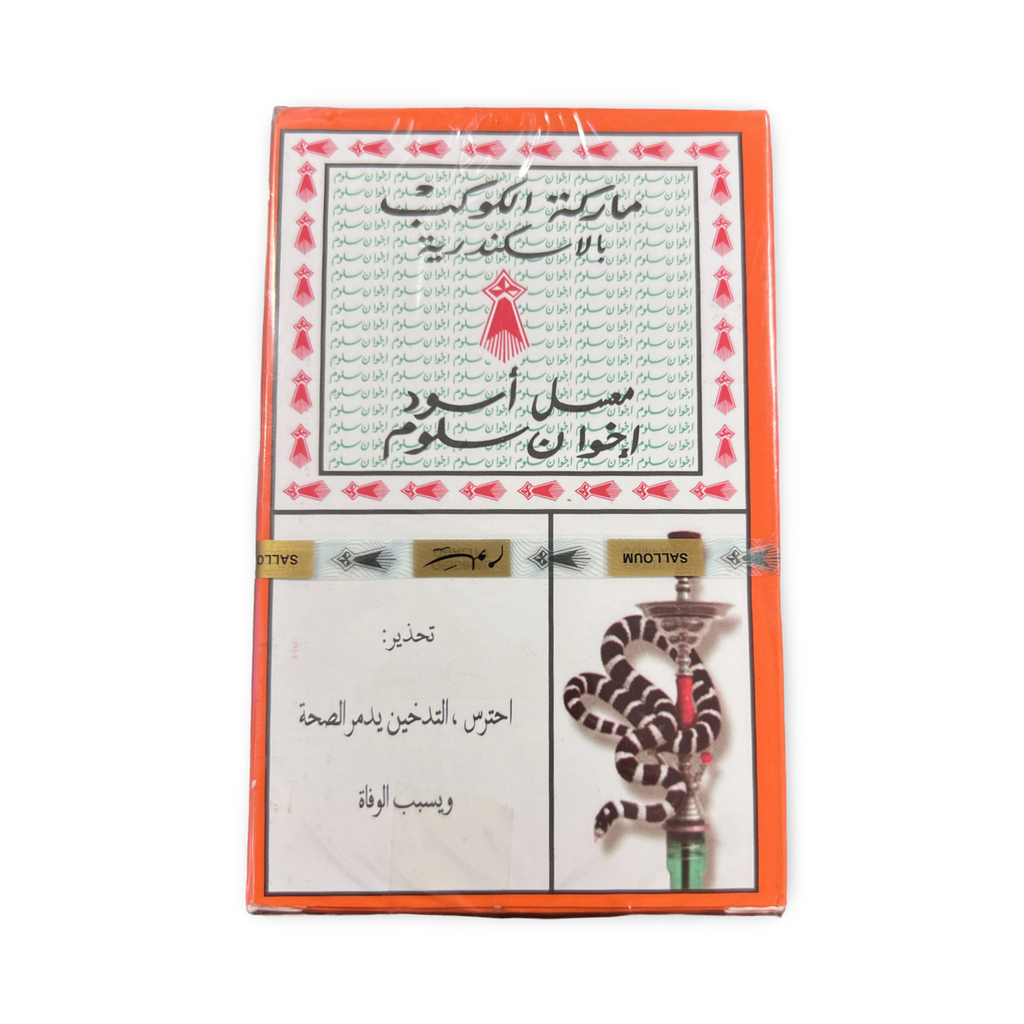 ماركة الكوكب
بالاسكندرية
معسل أسود
إخوان سلوم
SALLO
سلوم
SALLOUM
تحذير:
احترس ، التدخين يدمر الصحة
ويسبب الوفاة